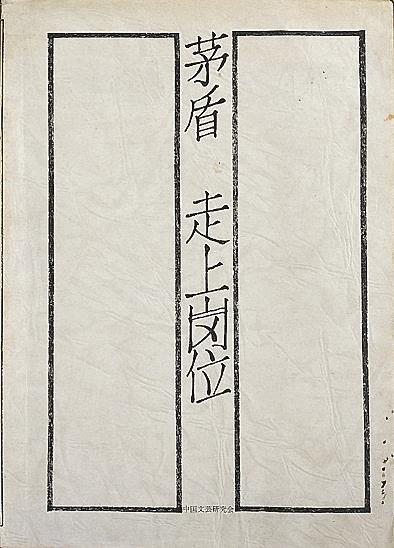 茅盾 走上岗位
中国文芸研究会